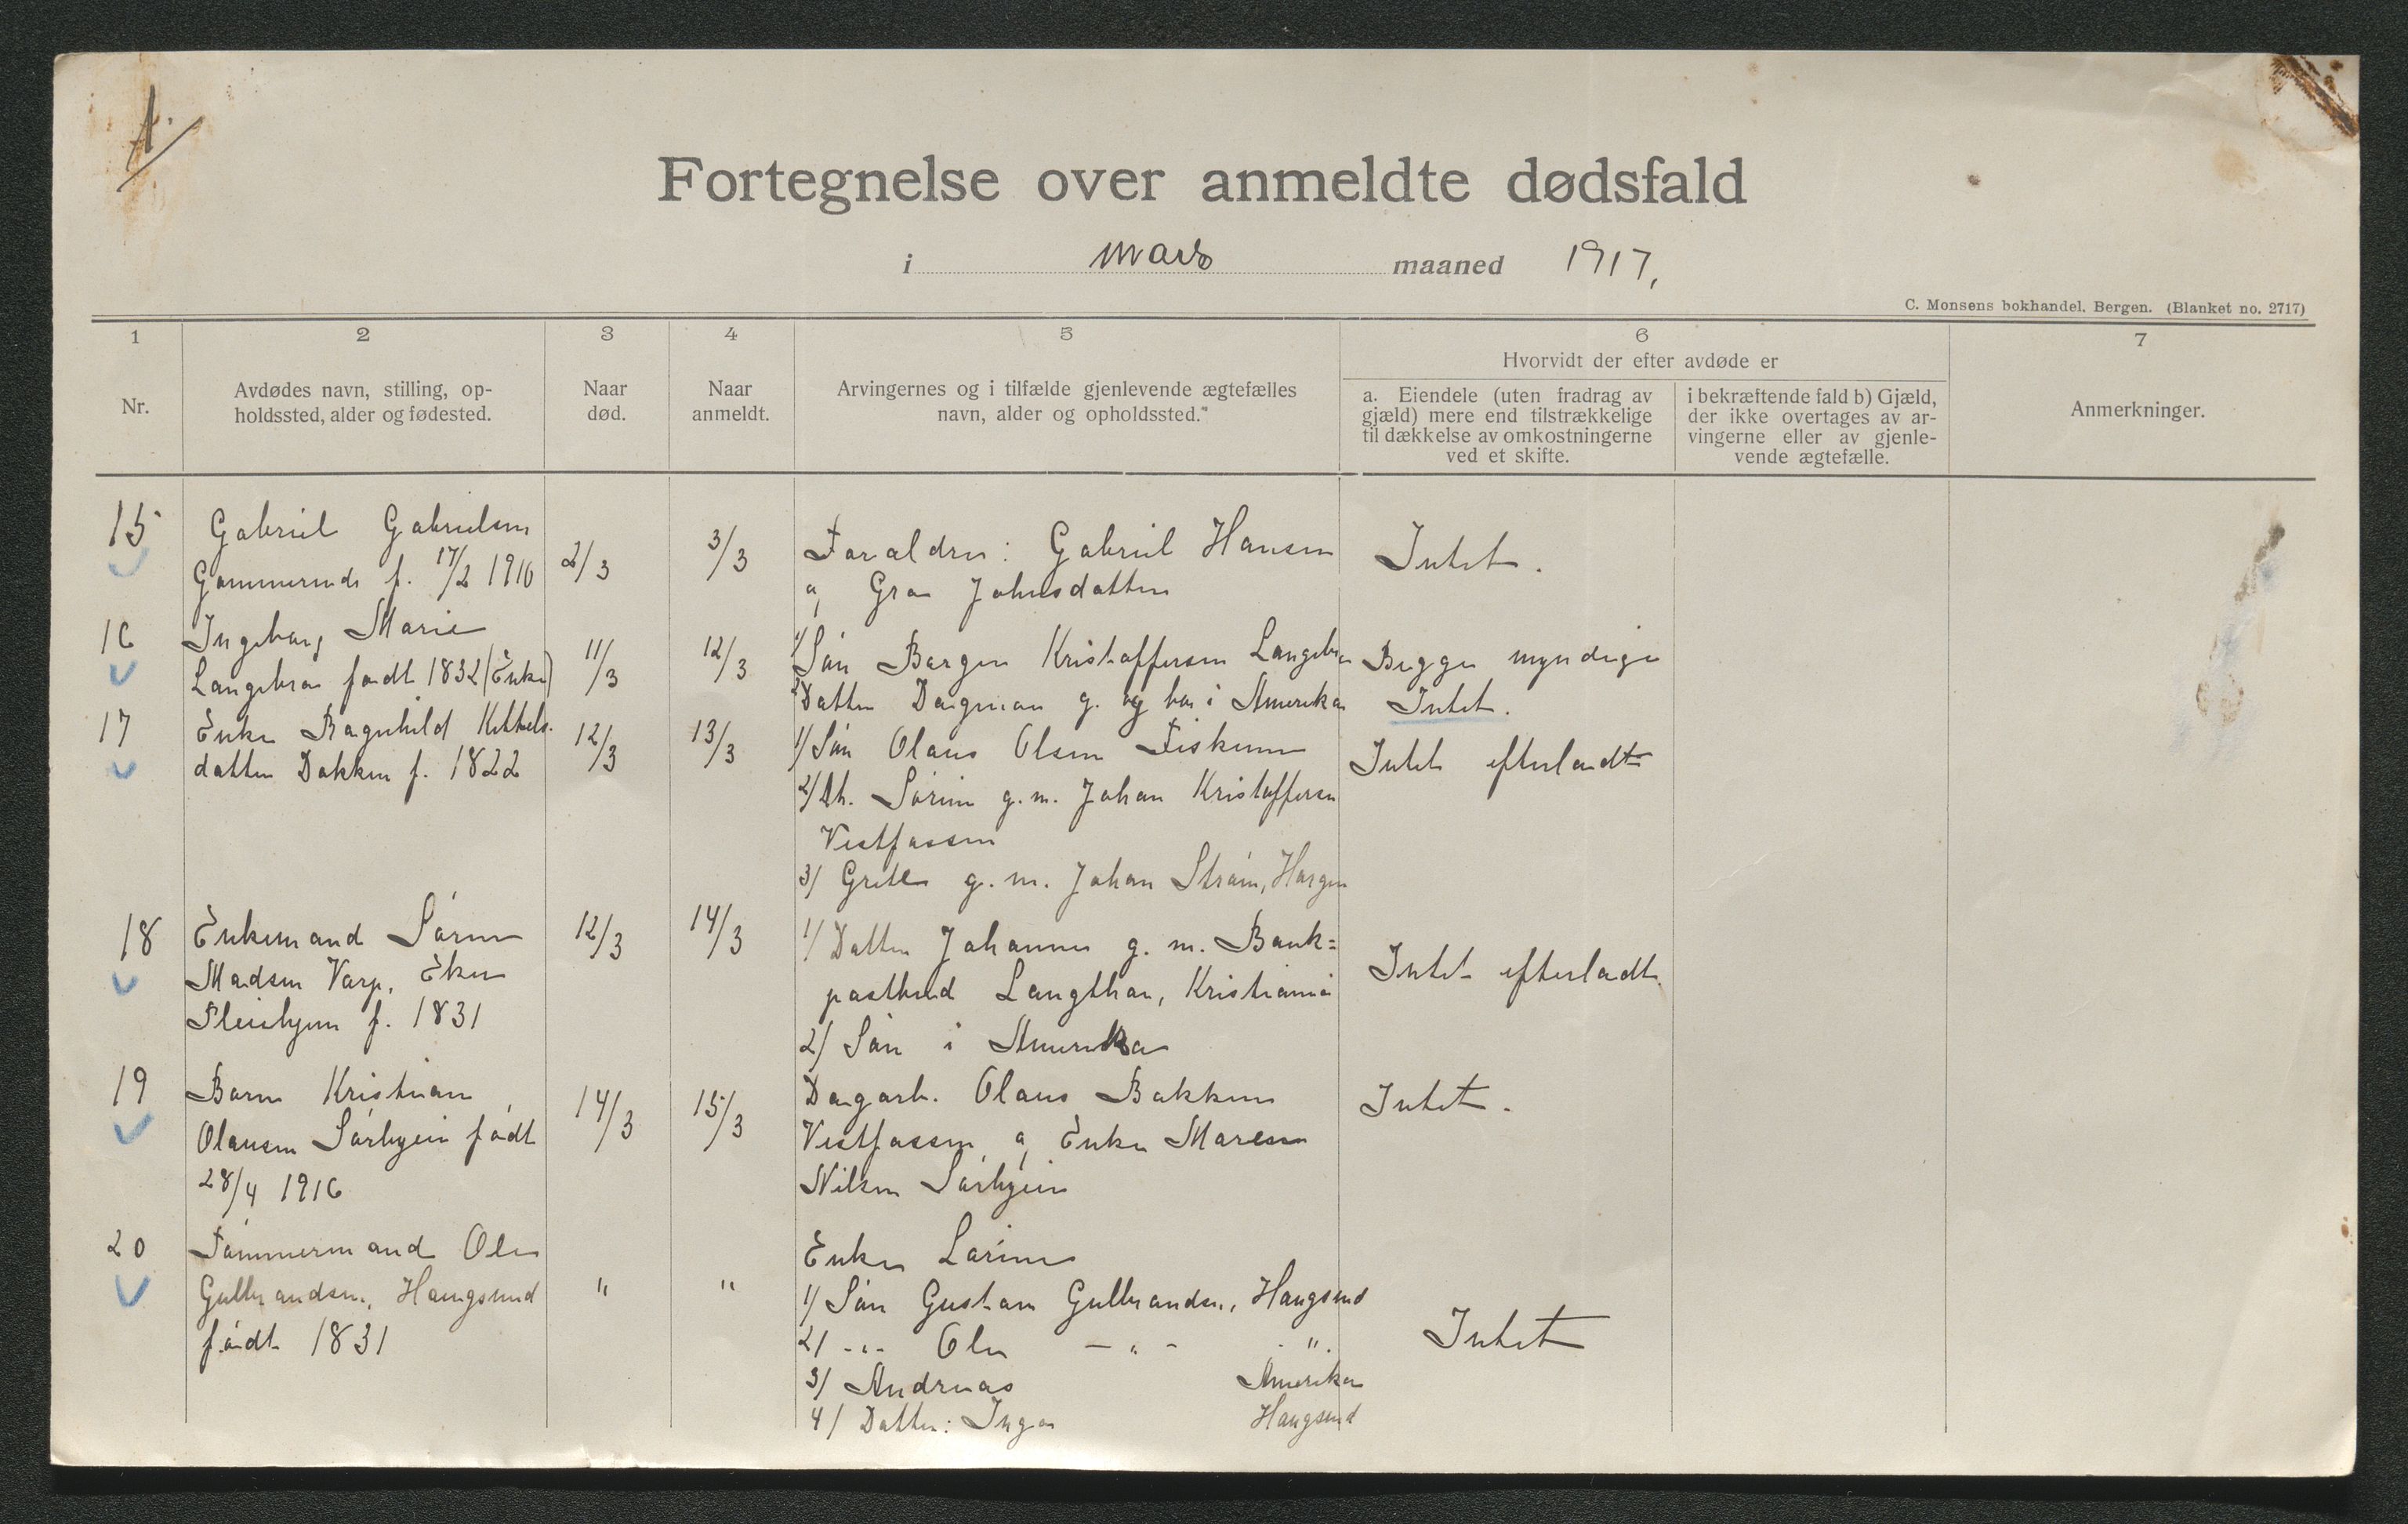 1.
Fortegnelse over anmeldte dødsfald
i mars maaned 1917,
C. Monsens bokhandel. Bergen. (Blanket no. 2717)
1 2 3 4 5 6 7
Nr.
Avdødes navn, stilling, op-
holdssted, alder og fødested.
Naar
død.
Naar
anmeldt.
Arvingernes og i tilfælde gjenlevende ægtefælles
navn, alder og opholdssted.
Hvorvidt der efter avdøde er
a. Eiendele (uten fradrag av
gjæld) mere end tilstrækkelige
til dækkelse av omkostningerne
ved et skifte.
i bekræftende fald b) Gjæld,
der ikke overtages av ar-
vingerne eller av gjenle-
vende ægtefælle.
Anmerkninger.
15 Gabriel Gabrielsen
f. 17/2 1916 2/3 3/3 Foraldre: Gabriel Hansen Intet.
og Gro Johnsdatter
16 Ingeborg Marie
Langebro født 1832 (Enke) 11/3 12/3 1/ Søn Borgen Kristoffersen Langebro Begge myndige
2/ Datter Dagmar g. og bor i Amerika Intet.
17 Enke Ragnhild Kittels-
datter Dokken f. 1822 12/3 13/3 1/ Søn Olaus Olsen Fiskum Intet efterladt
2/ Dt. Sørine g.m. Johan Kristoffersen
Vestfossen
3/ Grete g.m. Johan Strøm, Horgen
18 Enkemand Søren
Madsen Varp, Eker
f. 1831 12/3 14/3 1/ Datter Johanne g. m. Bank=
postbud Langthon, Kristiania Intet efterladt.
2/ Søn i Amerika
19 Barn Kristian
Olausen Sørbyeie født
28/4 1916 14/3 15/3 Dagarb. Olaus Bakken Intet.
Vestfossen og Enke Maren
Nilsen Sørbyeie
20 Tømmermand Ole
Gulbrandsen, Haugsund
født 1831 " " Enke Larine
1/ Søn Gustav Gulbrandsen, Haugsund
2/ -"- Ole -"- -". Intet
3/ Andreas Amerika
4/ Datter: Inga Haugsund